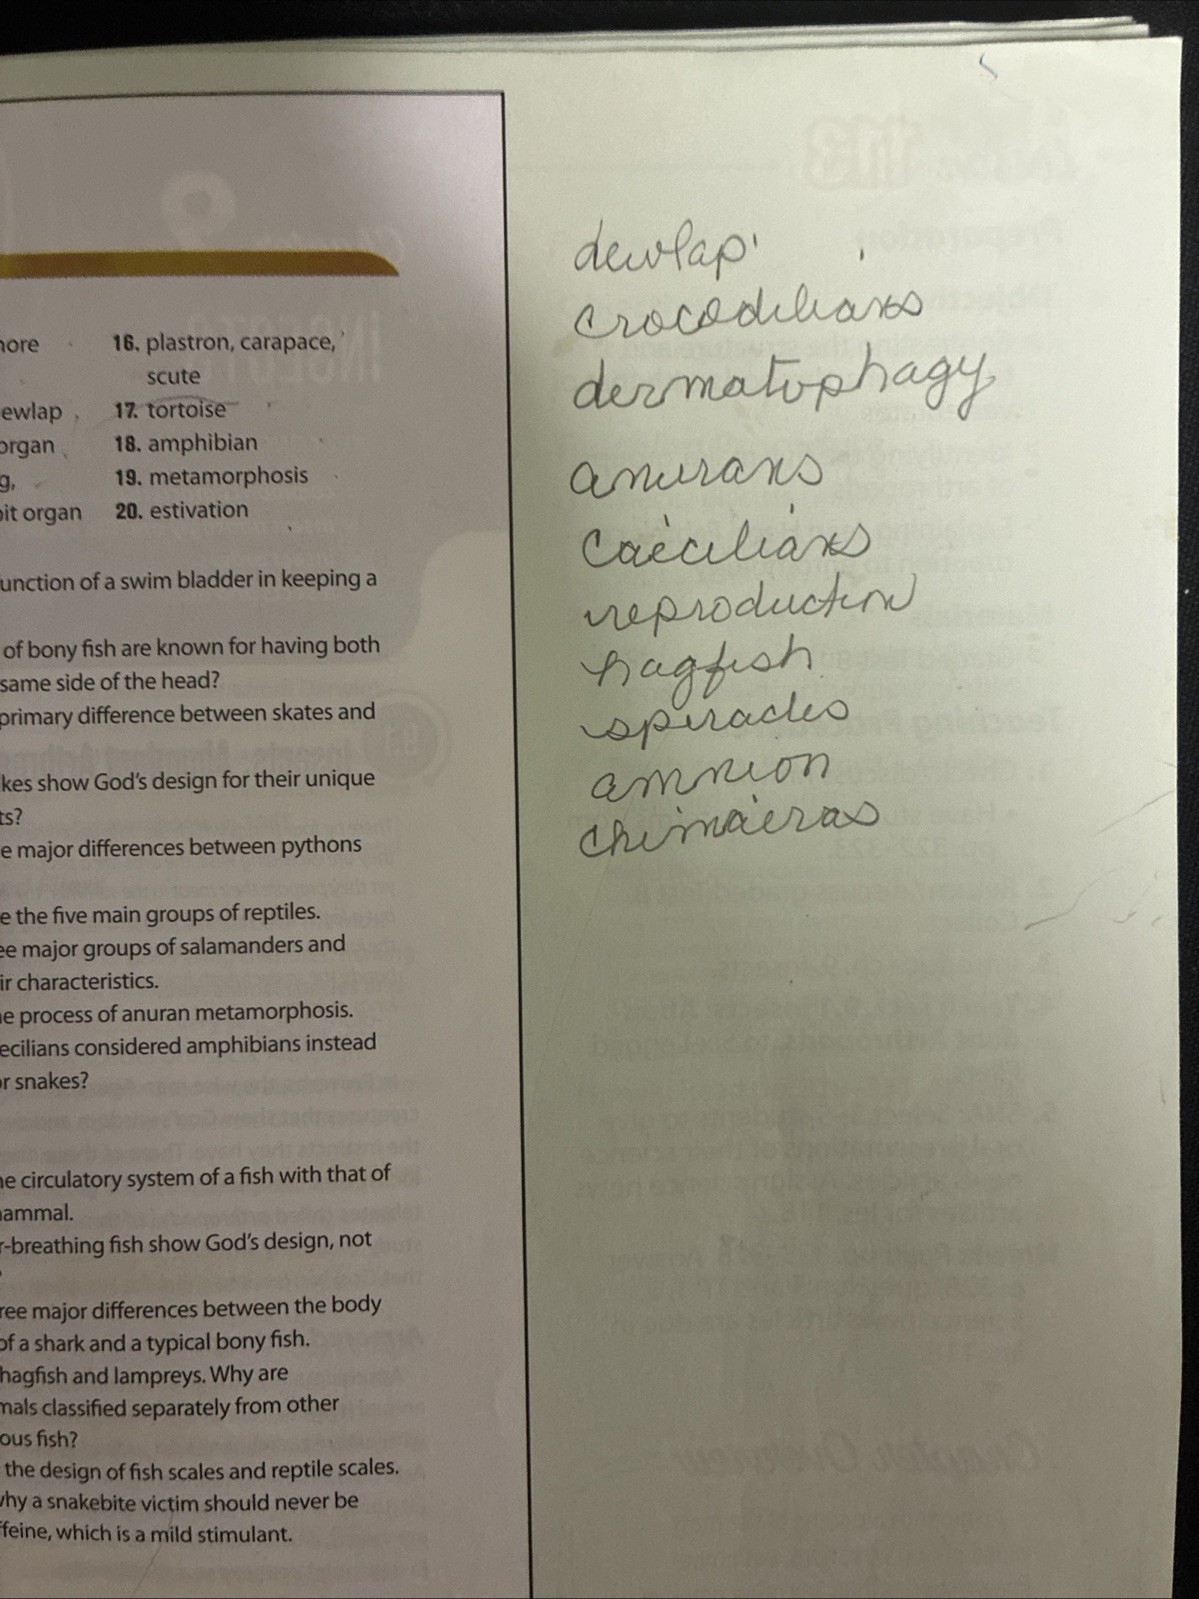 more
16. plastron, carapace,
scute
ewlap
17. tortoise
organ
18. amphibian
g,
19. metamorphosis
pit organ
20. estivation
unction of a swim bladder in keeping a
of bony fish are known for having both
same side of the head?
primary difference between skates and
kes show God's design for their unique
ts?
e major differences between pythons
e the five main groups of reptiles.
ee major groups of salamanders and
ir characteristics.
he process of anuran metamorphosis.
ecilians considered amphibians instead
or snakes?
he circulatory system of a fish with that of
mammal.
r-breathing fish show God's design, not
?
ree major differences between the body
of a shark and a typical bony fish.
hagfish and lampreys. Why are
mals classified separately from other
ous fish?
the design of fish scales and reptile scales.
why a snakebite victim should never be
ffeine, which is a mild stimulant.
dewlap
crocodilians
dermatophagy
anurans
caecilians
reproduction
hagfish
spiracles
amnion
chimaeras